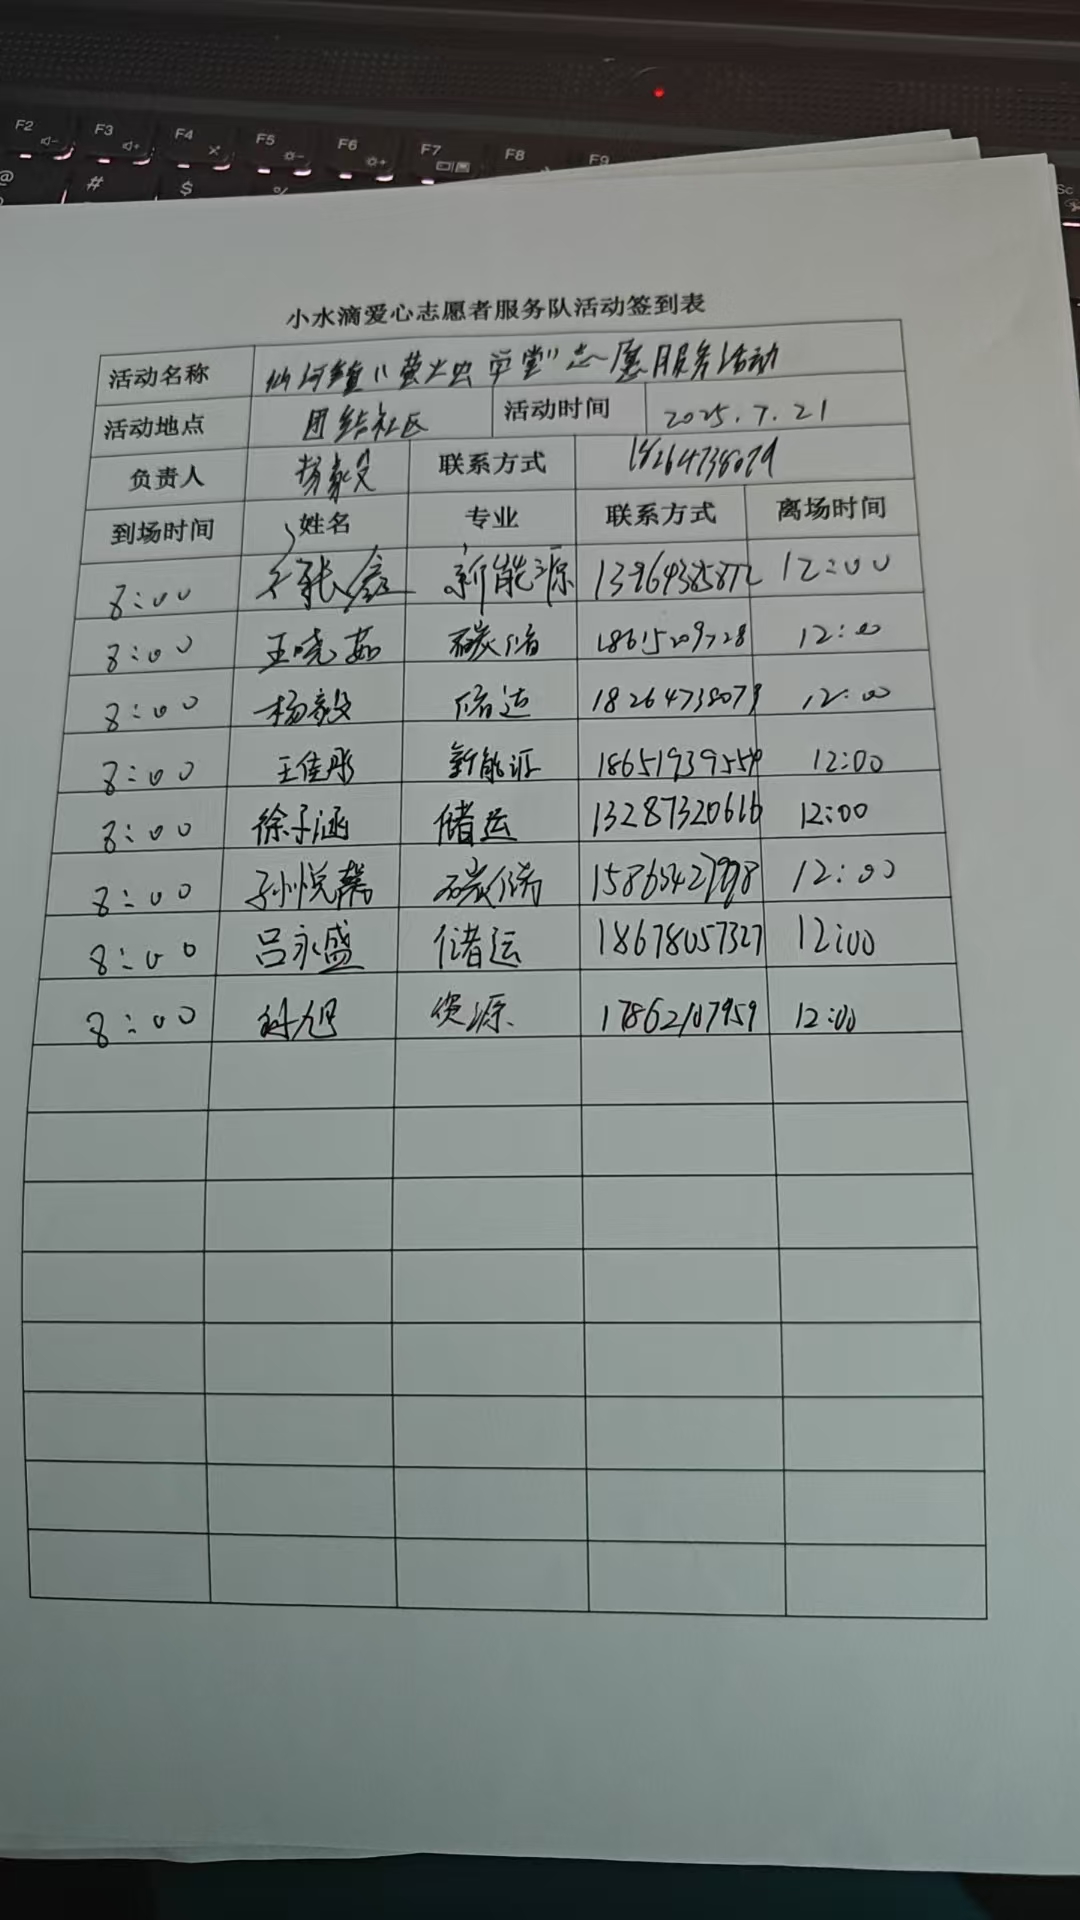 F2 F3 F4 F5 F6 F7 F8 F9
@ # $ %
小水滴爱心志愿者服务队活动签到表
活动名称 仙河镇"萤火虫学堂"志愿服务活动
活动地点 团结社区 活动时间 2025.7.21
负责人 联系方式
到场时间 姓名 专业 联系方式 离场时间
8:00 张鑫 新能源 12:00
8:00 王晓茹 碳储 12:00
8:00 储运 12:00
8:00 王佳彤 新能源 12:00
8:00 徐子涵 储运 13287320616 12:00
8:00 孙悦馨 碳储 12:00
8:00 吕永盛 储运 18678057327 12:00
8:00 资源 17862107959 12:00